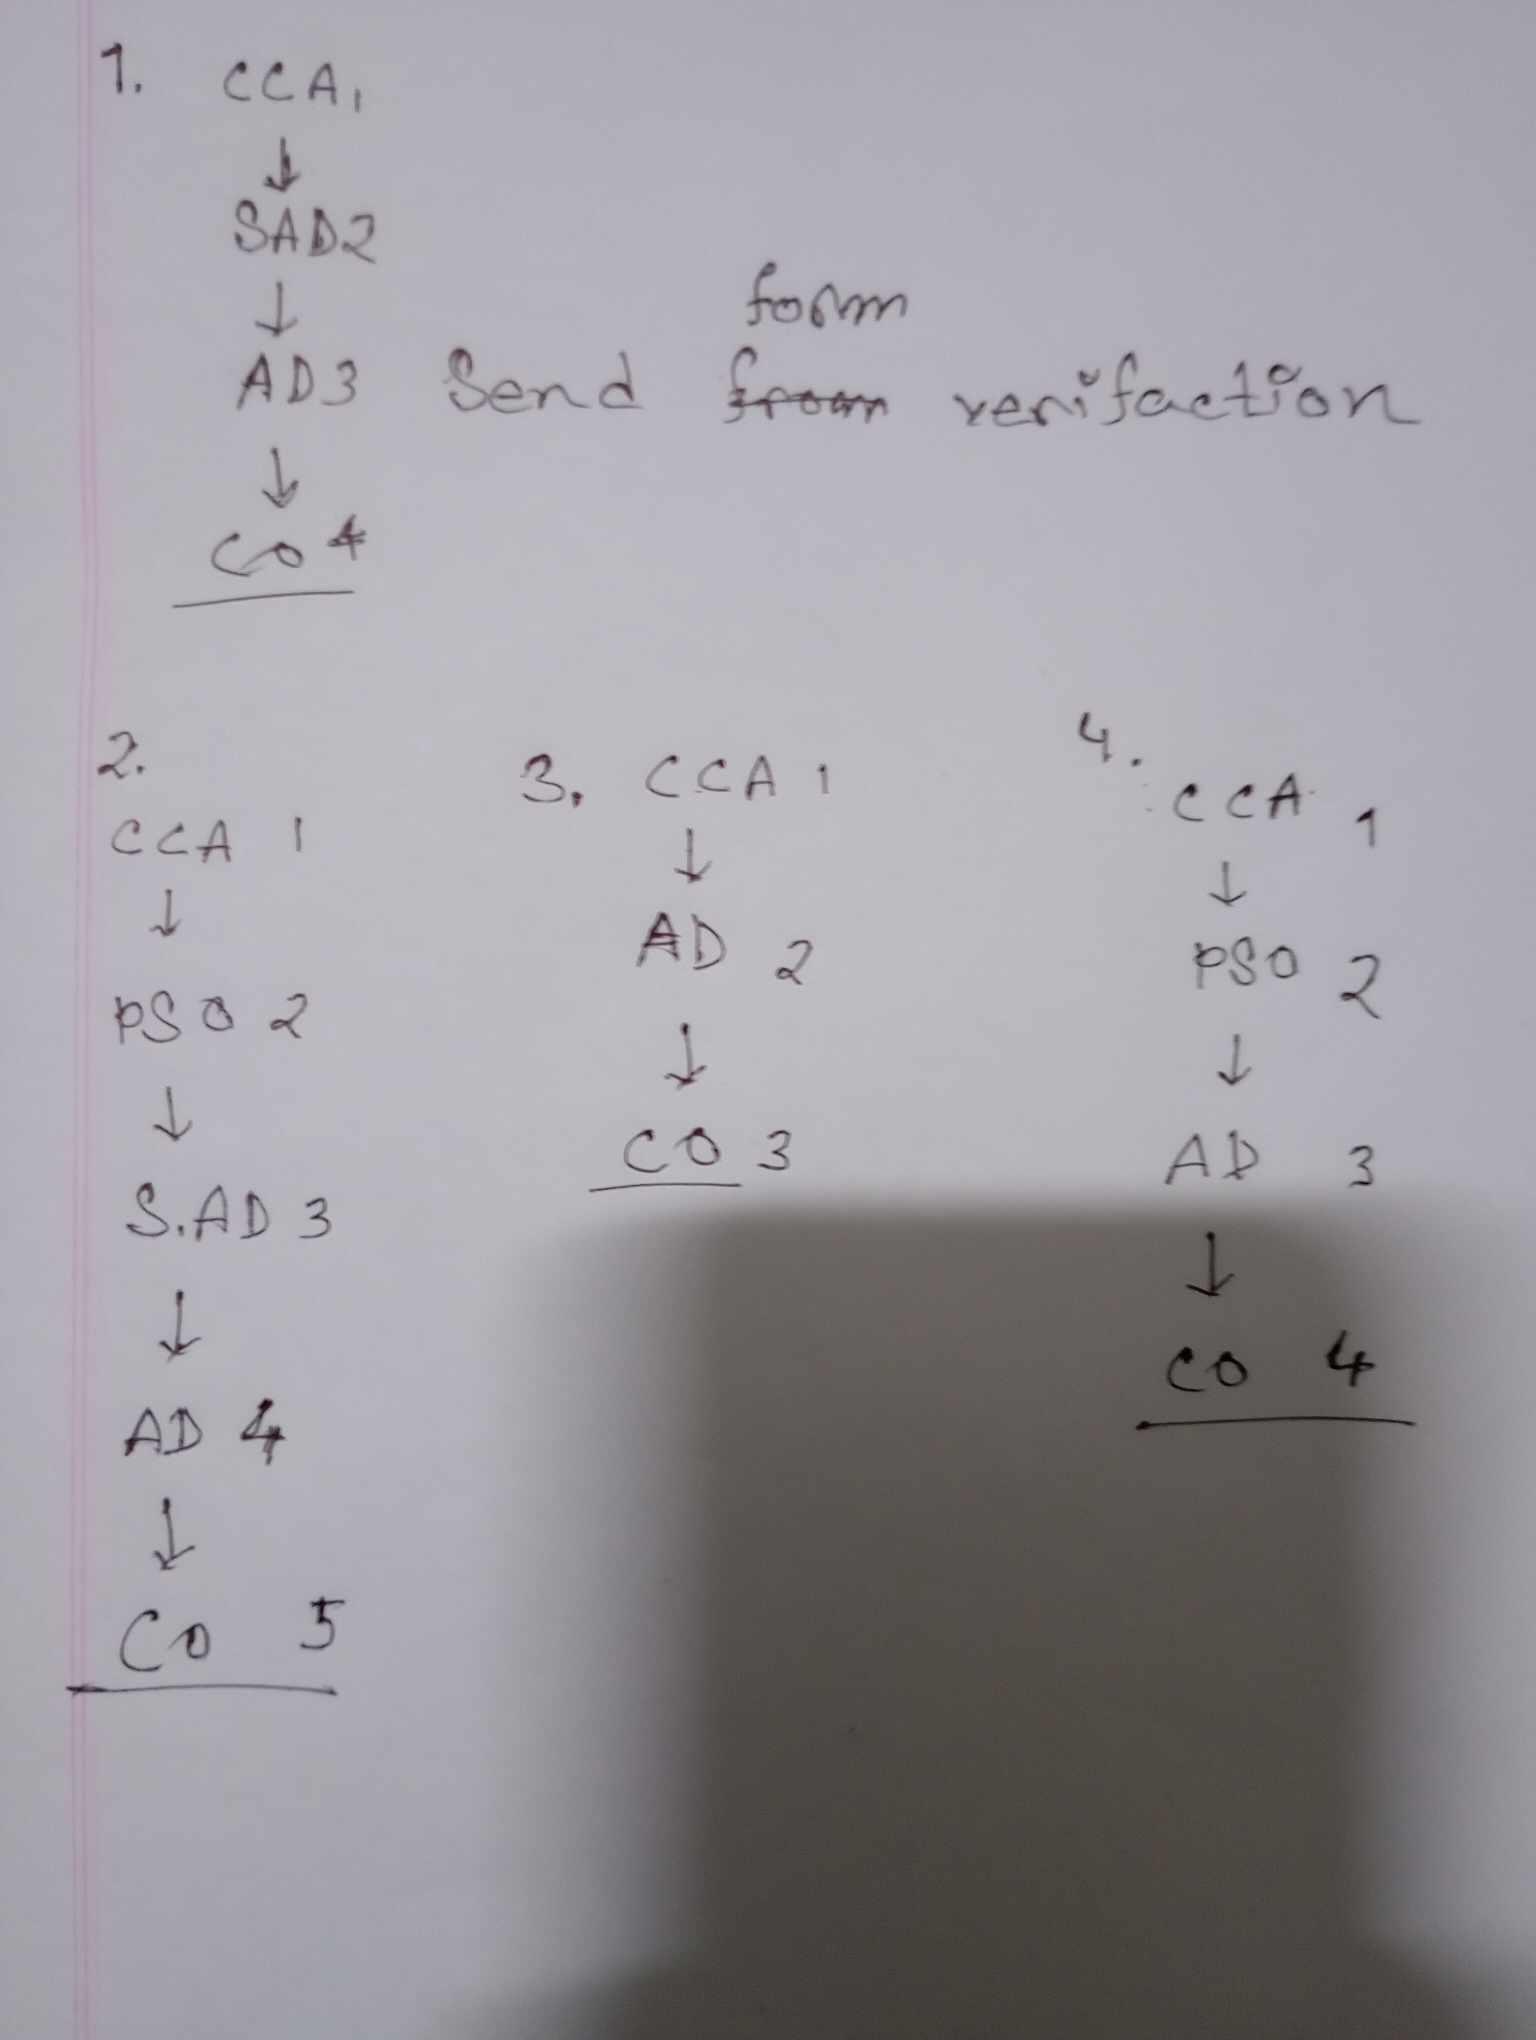 1. CCA 1
↓
SAD2
↓
form
AD3 Send from verifaction
↓
CO 4
2.
CCA 1
↓
PSO 2
↓
S.AD 3
↓
AD 4
↓
CO 5
3. CCA 1
↓
AD 2
↓
CO 3
4.
CCA 1
↓
PSO 2
↓
AD 3
↓
CO 4